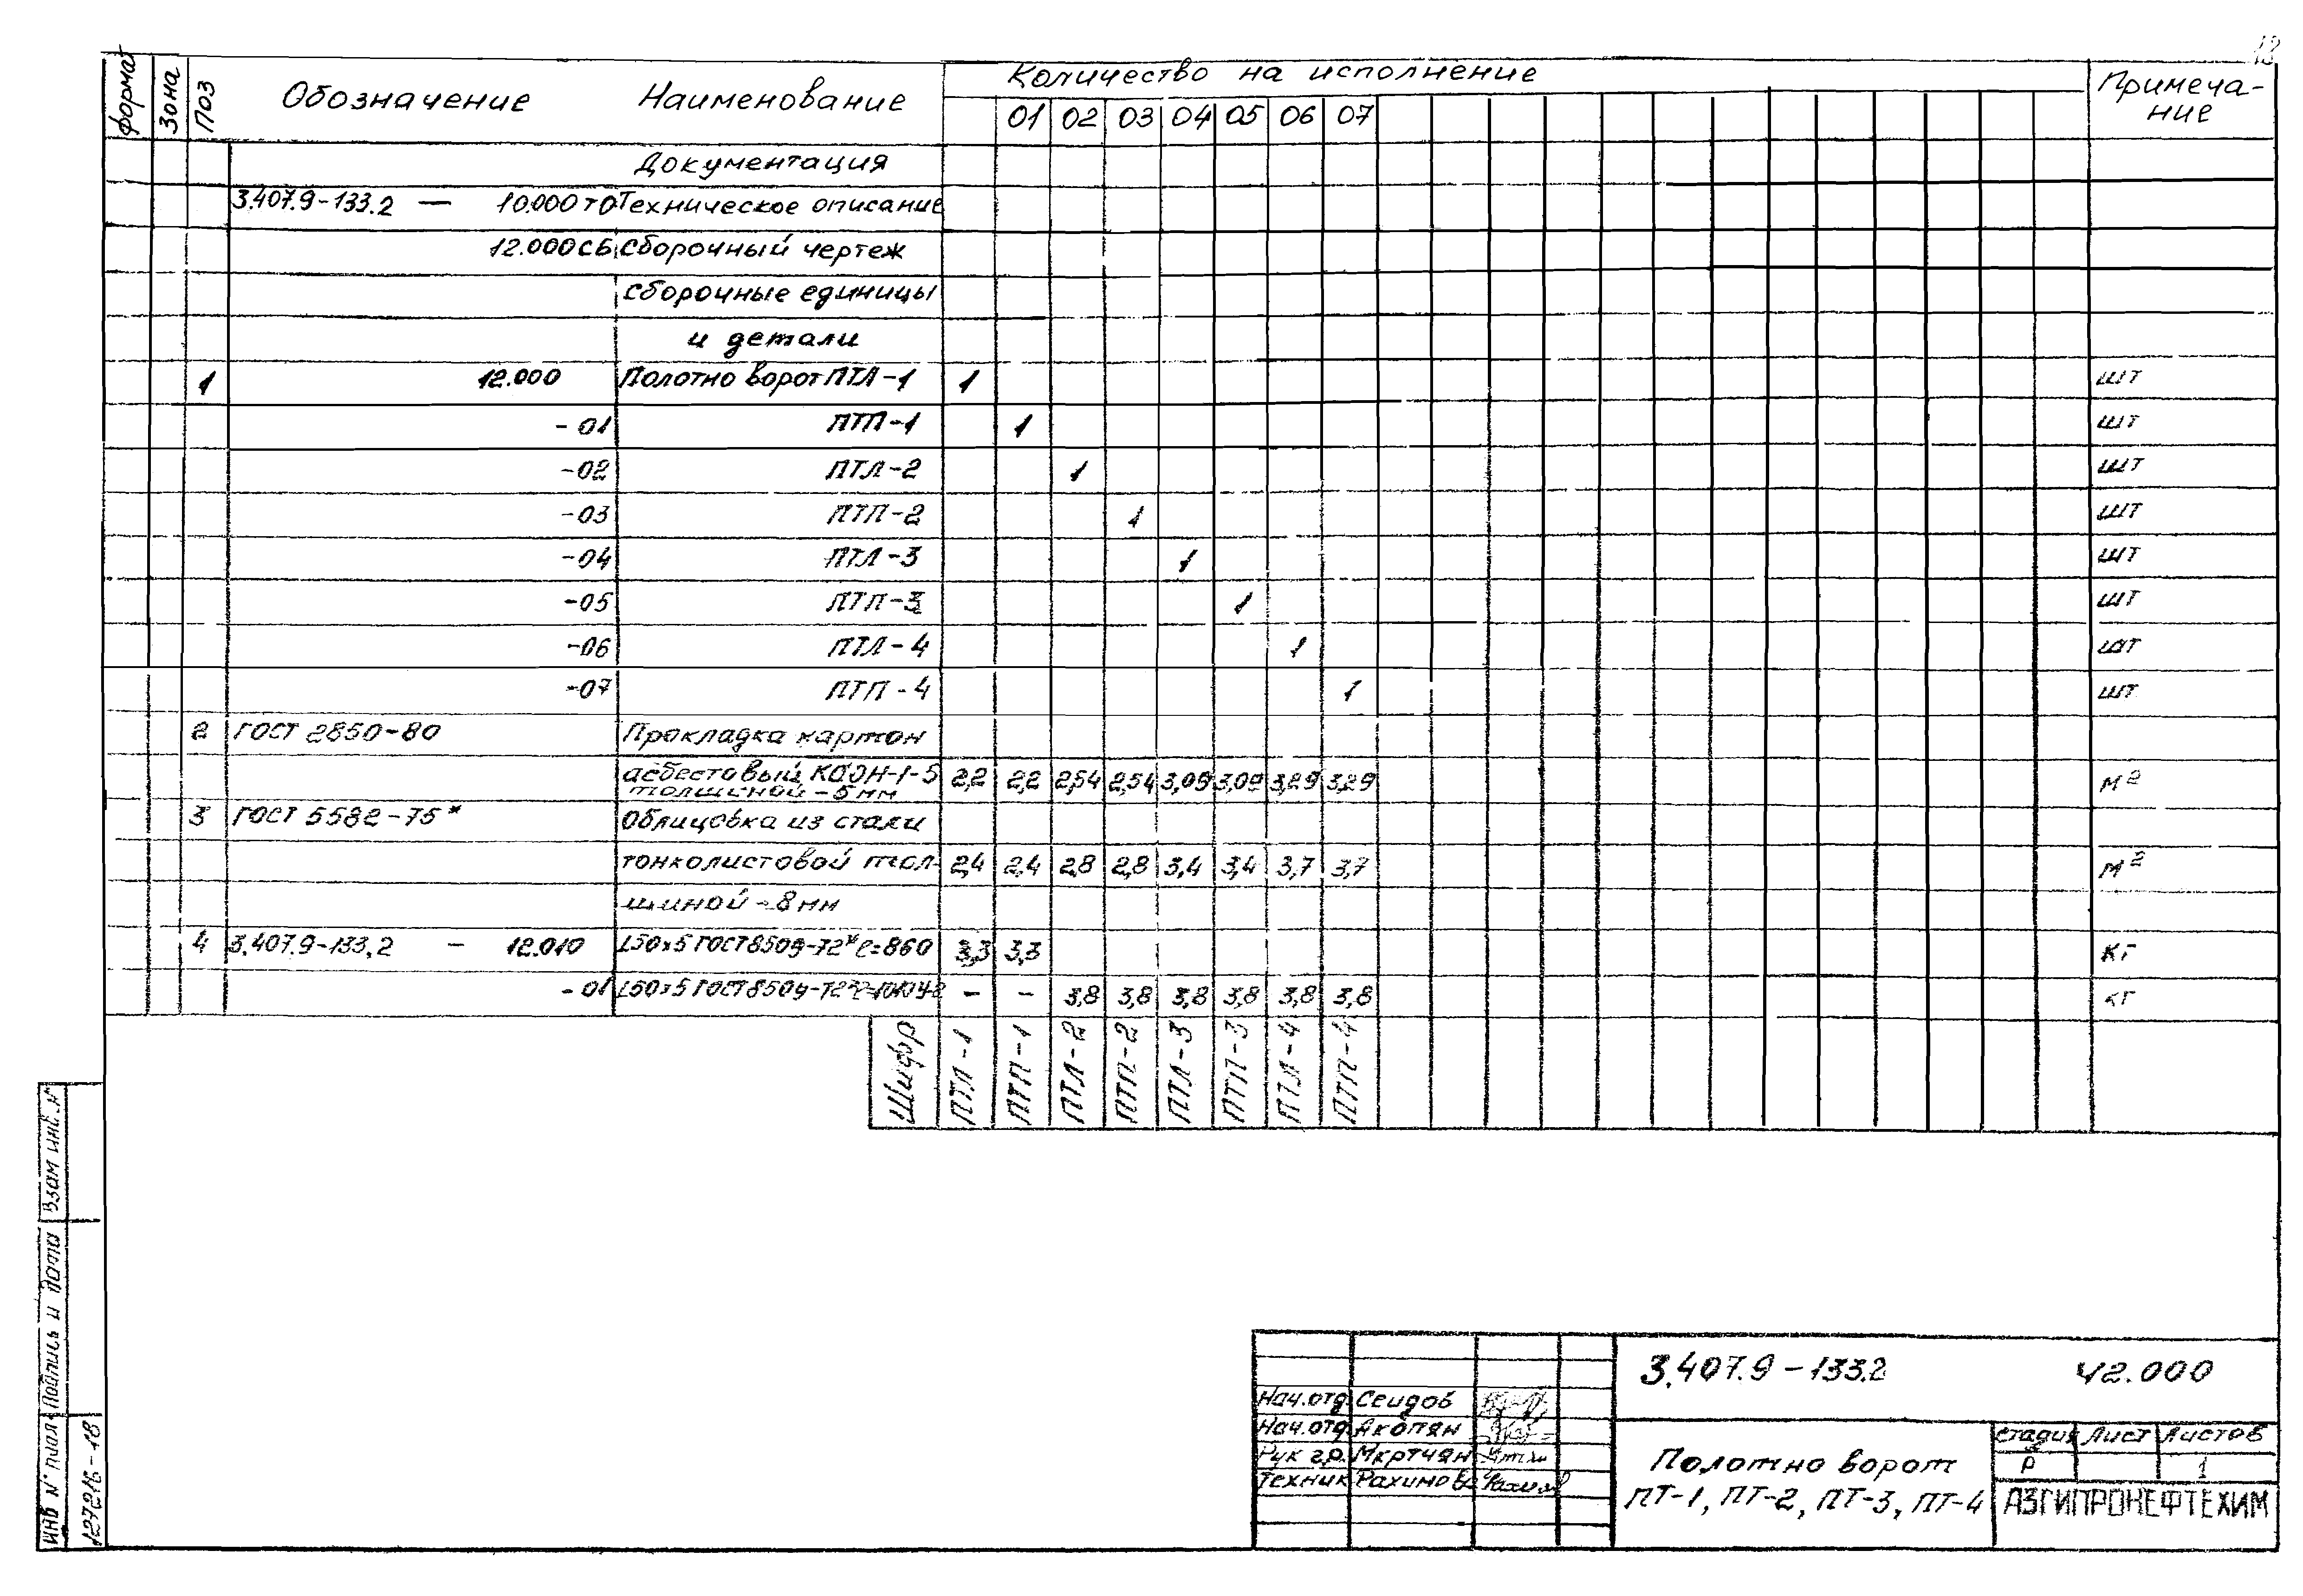 13
формат Зона Поз Обозначение Наименование Количество на исполнение Примеча-
ние
01 02 03 04 05 06 07
Документация
3.407.9-133.2 — 10.000 ТО Техническое описание
12.000 СБ Сборочный чертеж
Сборочные единицы
и детали
1 12.000 Полотно ворот ПТЛ-1 1 шт
-01 ПТП-1 1 шт
-02 ПТЛ-2 1 шт
-03 ПТП-2 1 шт
-04 ПТЛ-3 1 шт
-05 ПТП-3 1 шт
-06 ПТЛ-4 1 шт
-07 ПТП-4 1 шт
2 ГОСТ 2850-80 Прокладка картон
асбестовый КАОН-1-5 2,2 2,2 2,54 2,54 3,09 3,09 3,29 3,29 м2
толщиной-5мм
3 ГОСТ 5582-75* Облицовка из стали
тонколистовой тол- 2,4 2,4 2,8 2,8 3,4 3,4 3,7 3,7 м2
щиной-8мм
4 3.407.9-133.2 - 12.010 L50х5 ГОСТ 8509-72* ℓ=860 3,3 3,3 кг
-01 L50х5 ГОСТ 8509-72* - - 3,8 3,8 3,8 3,8 3,8 3,8 кг
Шифр ПТЛ-1 ПТП-1 ПТЛ-2 ПТП-2 ПТЛ-3 ПТП-3 ПТЛ-4 ПТП-4
Взам инв. №
Подпись и дата
Инв № подл
127216-18
3.407.9-133.2 12.000
Нач.отд. Сеидов
Нач.отд. Акопян
Рук гр. Мкртчян
Техник Рахимова
Полотно ворот
ПТ-1, ПТ-2, ПТ-3, ПТ-4
Стадия Лист Листов
Р 1
АЗГИПРОНЕФТЕХИМ